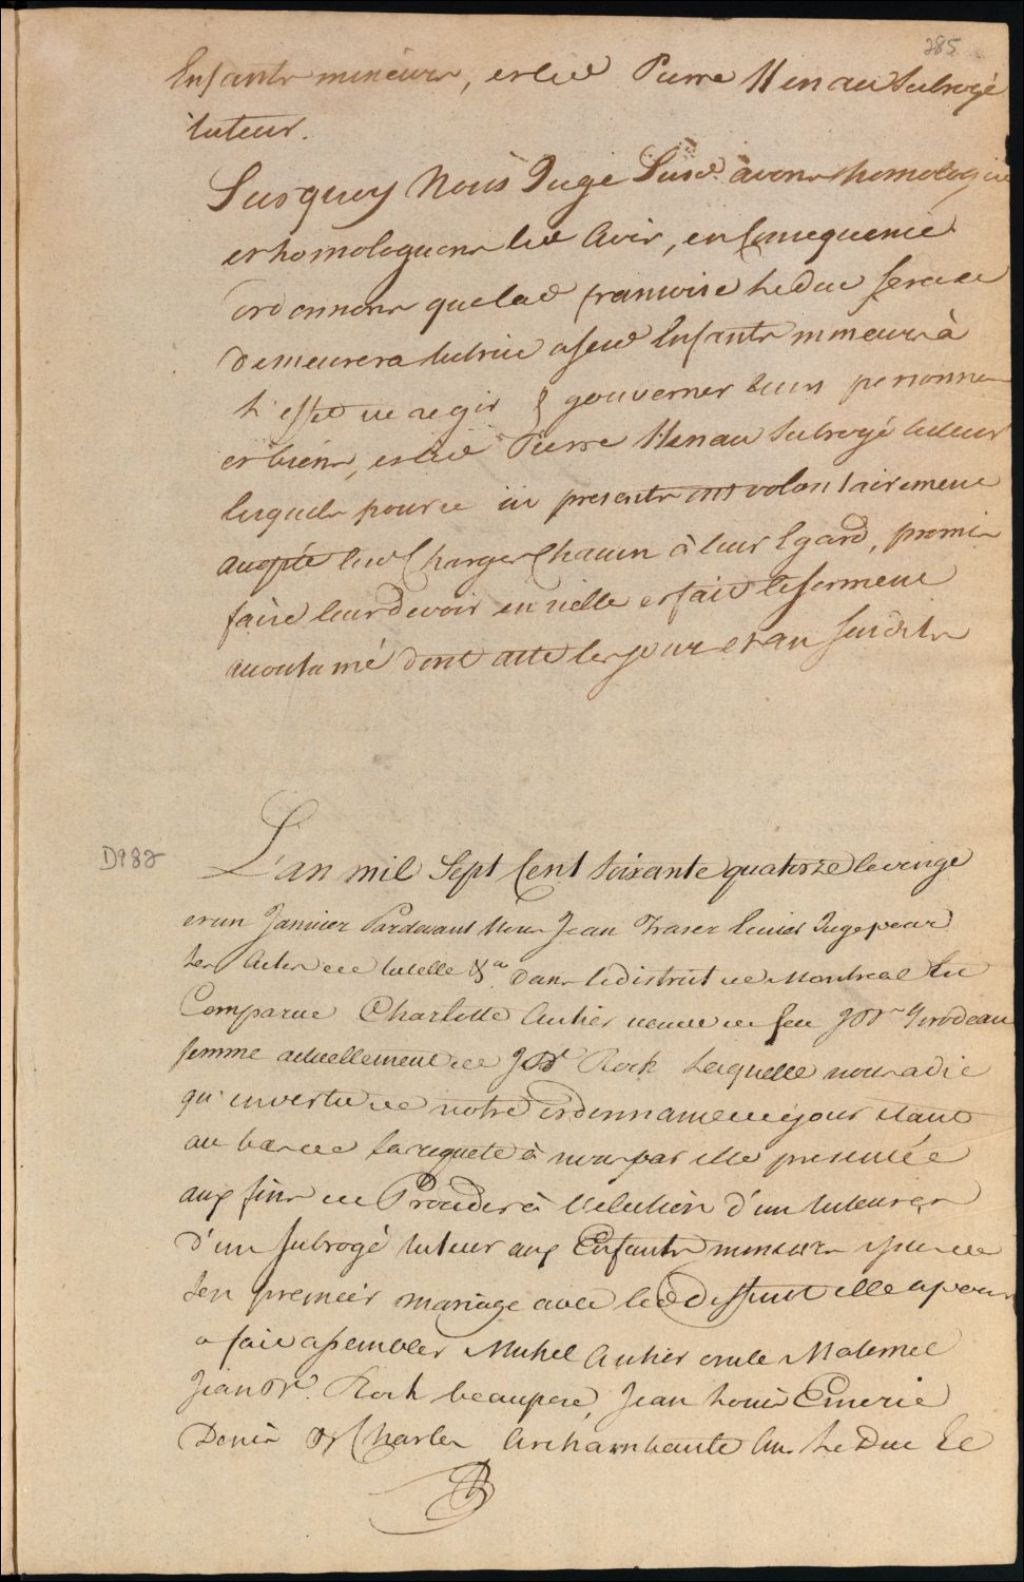 285
Enfants mineurs, et led Pierre Henau Subrogé
tuteur.
Surquoy Nous Juge Susd. avons homologué
et homologuons led avis, en Consequence
ordonnons que lad francoise Leduc sera et
demeurera tutrice a sesd Enfants mineurs à
L'effet de regir & gouverner leurs personnes
et biens, et led Pierre Henau Subrogé tuteur
lesquels pour ce ici presents ont volontairement
accepté lesd Charges Chacun à leur Egard, promis
faire leur devoir en icelle et fait le serment
accoutumé dont acte les jour et an susdits
D982
L'an mil Sept Cent Soixante quatorze le vingt
et un Janvier Pardevant Nous Jean Fraser Ecuier Juge pour
Les Actes de tutelle &a. Dans le district de Montreal Est
Comparue Charlotte Autier veuve de feu JBte Girodeau
femme actuellement de JBte Rock Laquelle nous a dit
qu'en vertu de notre ordonnance de ce jour étant
au bas de la requete à nous par elle presentée
aux fins de Proceder à l'election d'un tuteur et
d'un subrogé tuteur aux Enfants mineurs issus de
son premier mariage avec led deffunt elle a pour
a fait assembler Michel Autier oncle Maternel
Jean Bte. Rock beaupere, Jean Louis Emerie
Denis & Charles Archambault Leduc Et